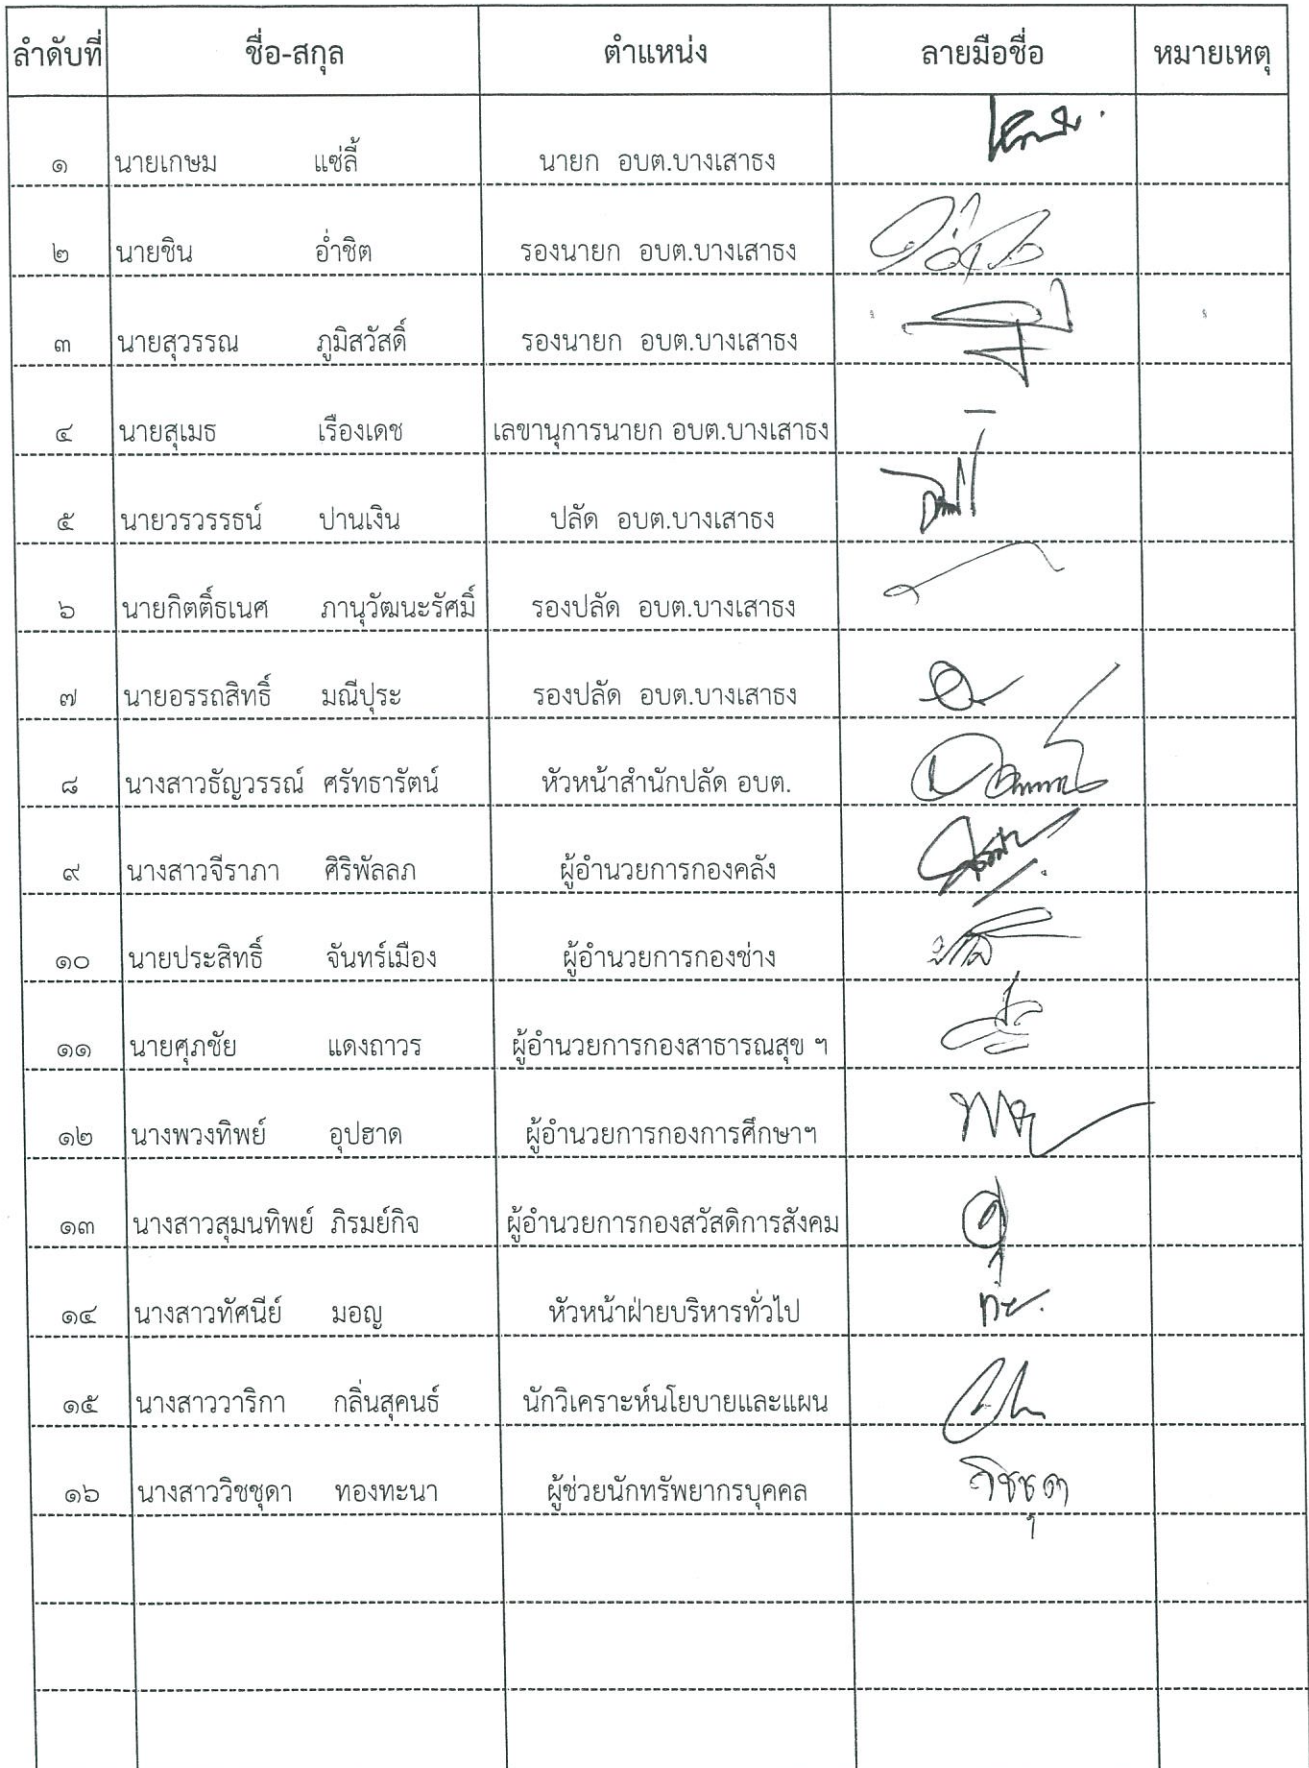 ลำดับที่ ชื่อ-สกุล ตำแหน่ง ลายมือชื่อ หมายเหตุ
๑ นายเกษม แซ่ลี้ นายก อบต.บางเสาธง
๒ นายชิน อ่ำชิต รองนายก อบต.บางเสาธง
๓ นายสุวรรณ ภูมิสวัสดิ์ รองนายก อบต.บางเสาธง
๔ นายสุเมธ เรืองเดช เลขานุการนายก อบต.บางเสาธง –
๕ นายวรวรรธน์ ปานเงิน ปลัด อบต.บางเสาธง
๖ นายกิตติ์ธเนศ ภานุวัฒนะรัศมิ์ รองปลัด อบต.บางเสาธง
๗ นายอรรถสิทธิ์ มณีปุระ รองปลัด อบต.บางเสาธง
๘ นางสาวธัญวรรณ์ ศรัทธารัตน์ หัวหน้าสำนักปลัด อบต.
๙ นางสาวจีราภา ศิริพัลลภ ผู้อำนวยการกองคลัง
๑๐ นายประสิทธิ์ จันทร์เมือง ผู้อำนวยการกองช่าง
๑๑ นายศุภชัย แดงถาวร ผู้อำนวยการกองสาธารณสุข ฯ
๑๒ นางพวงทิพย์ อุปฮาด ผู้อำนวยการกองการศึกษาฯ
๑๓ นางสาวสุมนทิพย์ ภิรมย์กิจ ผู้อำนวยการกองสวัสดิการสังคม
๑๔ นางสาวทัศนีย์ มอญ หัวหน้าฝ่ายบริหารทั่วไป
๑๕ นางสาววาริกา กลิ่นสุคนธ์ นักวิเคราะห์นโยบายและแผน
๑๖ นางสาววิชชุดา ทองทะนา ผู้ช่วยนักทรัพยากรบุคคล วิชชุดา